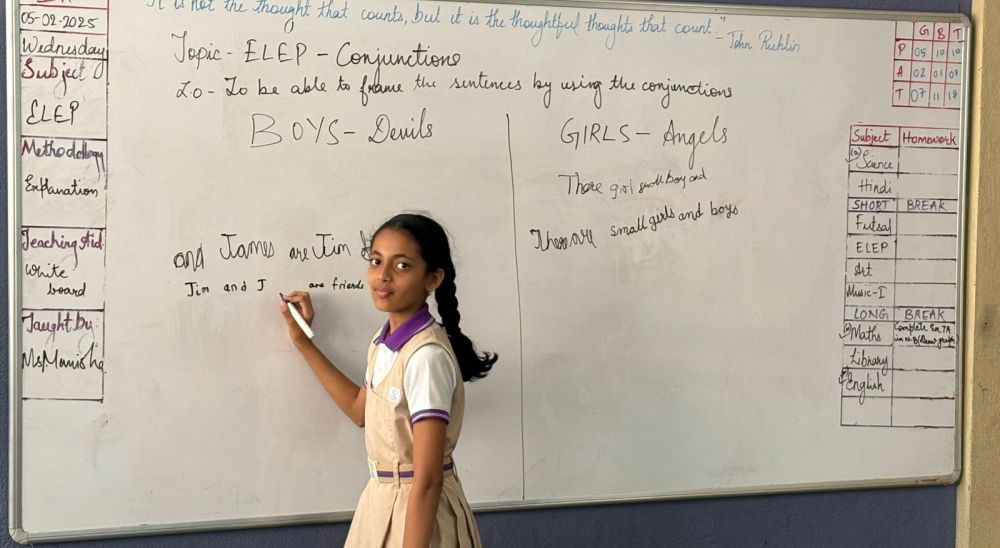 It is not the thought that counts, but it is the thoughtful thoughts that count."
- John Ruhlin
05-02-2025
Wednesday
Subject
ELEP
Methodology
Explanation
Teaching Aid:
White
board
Taught by:
Ms Manisha
Topic - ELEP - Conjunctions
LO - To be able to frame the sentences by using the conjunctions
BOYS - Devils
and James are Jim
Jim and J are friends
GIRLS - Angels
There girl small boy and
There are small girls and boys
G B T
P 05 10
A 02 01
T 07 11 18
Subject Homework
Science
Hindi
SHORT BREAK
Futsal
ELEP
Art
Music-I
LONG BREAK
Maths Complete Ex 7A
in N.B
Library
English